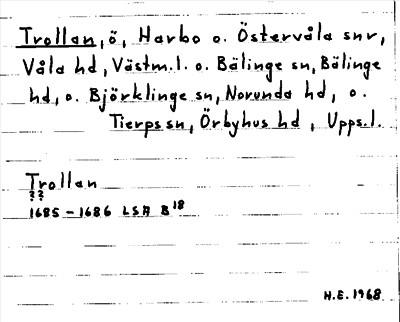 Trollan, ö, Harbo o. Östervåla snr,
Våla hd, Västm.l. o. Bälinge sn, Bälinge
hd, o. Björklinge sn, Norunda hd, o.
Tierps sn, Örbyhus hd, Upps.l.
Trollan
??
1685-1686 LSA B18
H.E. 1968